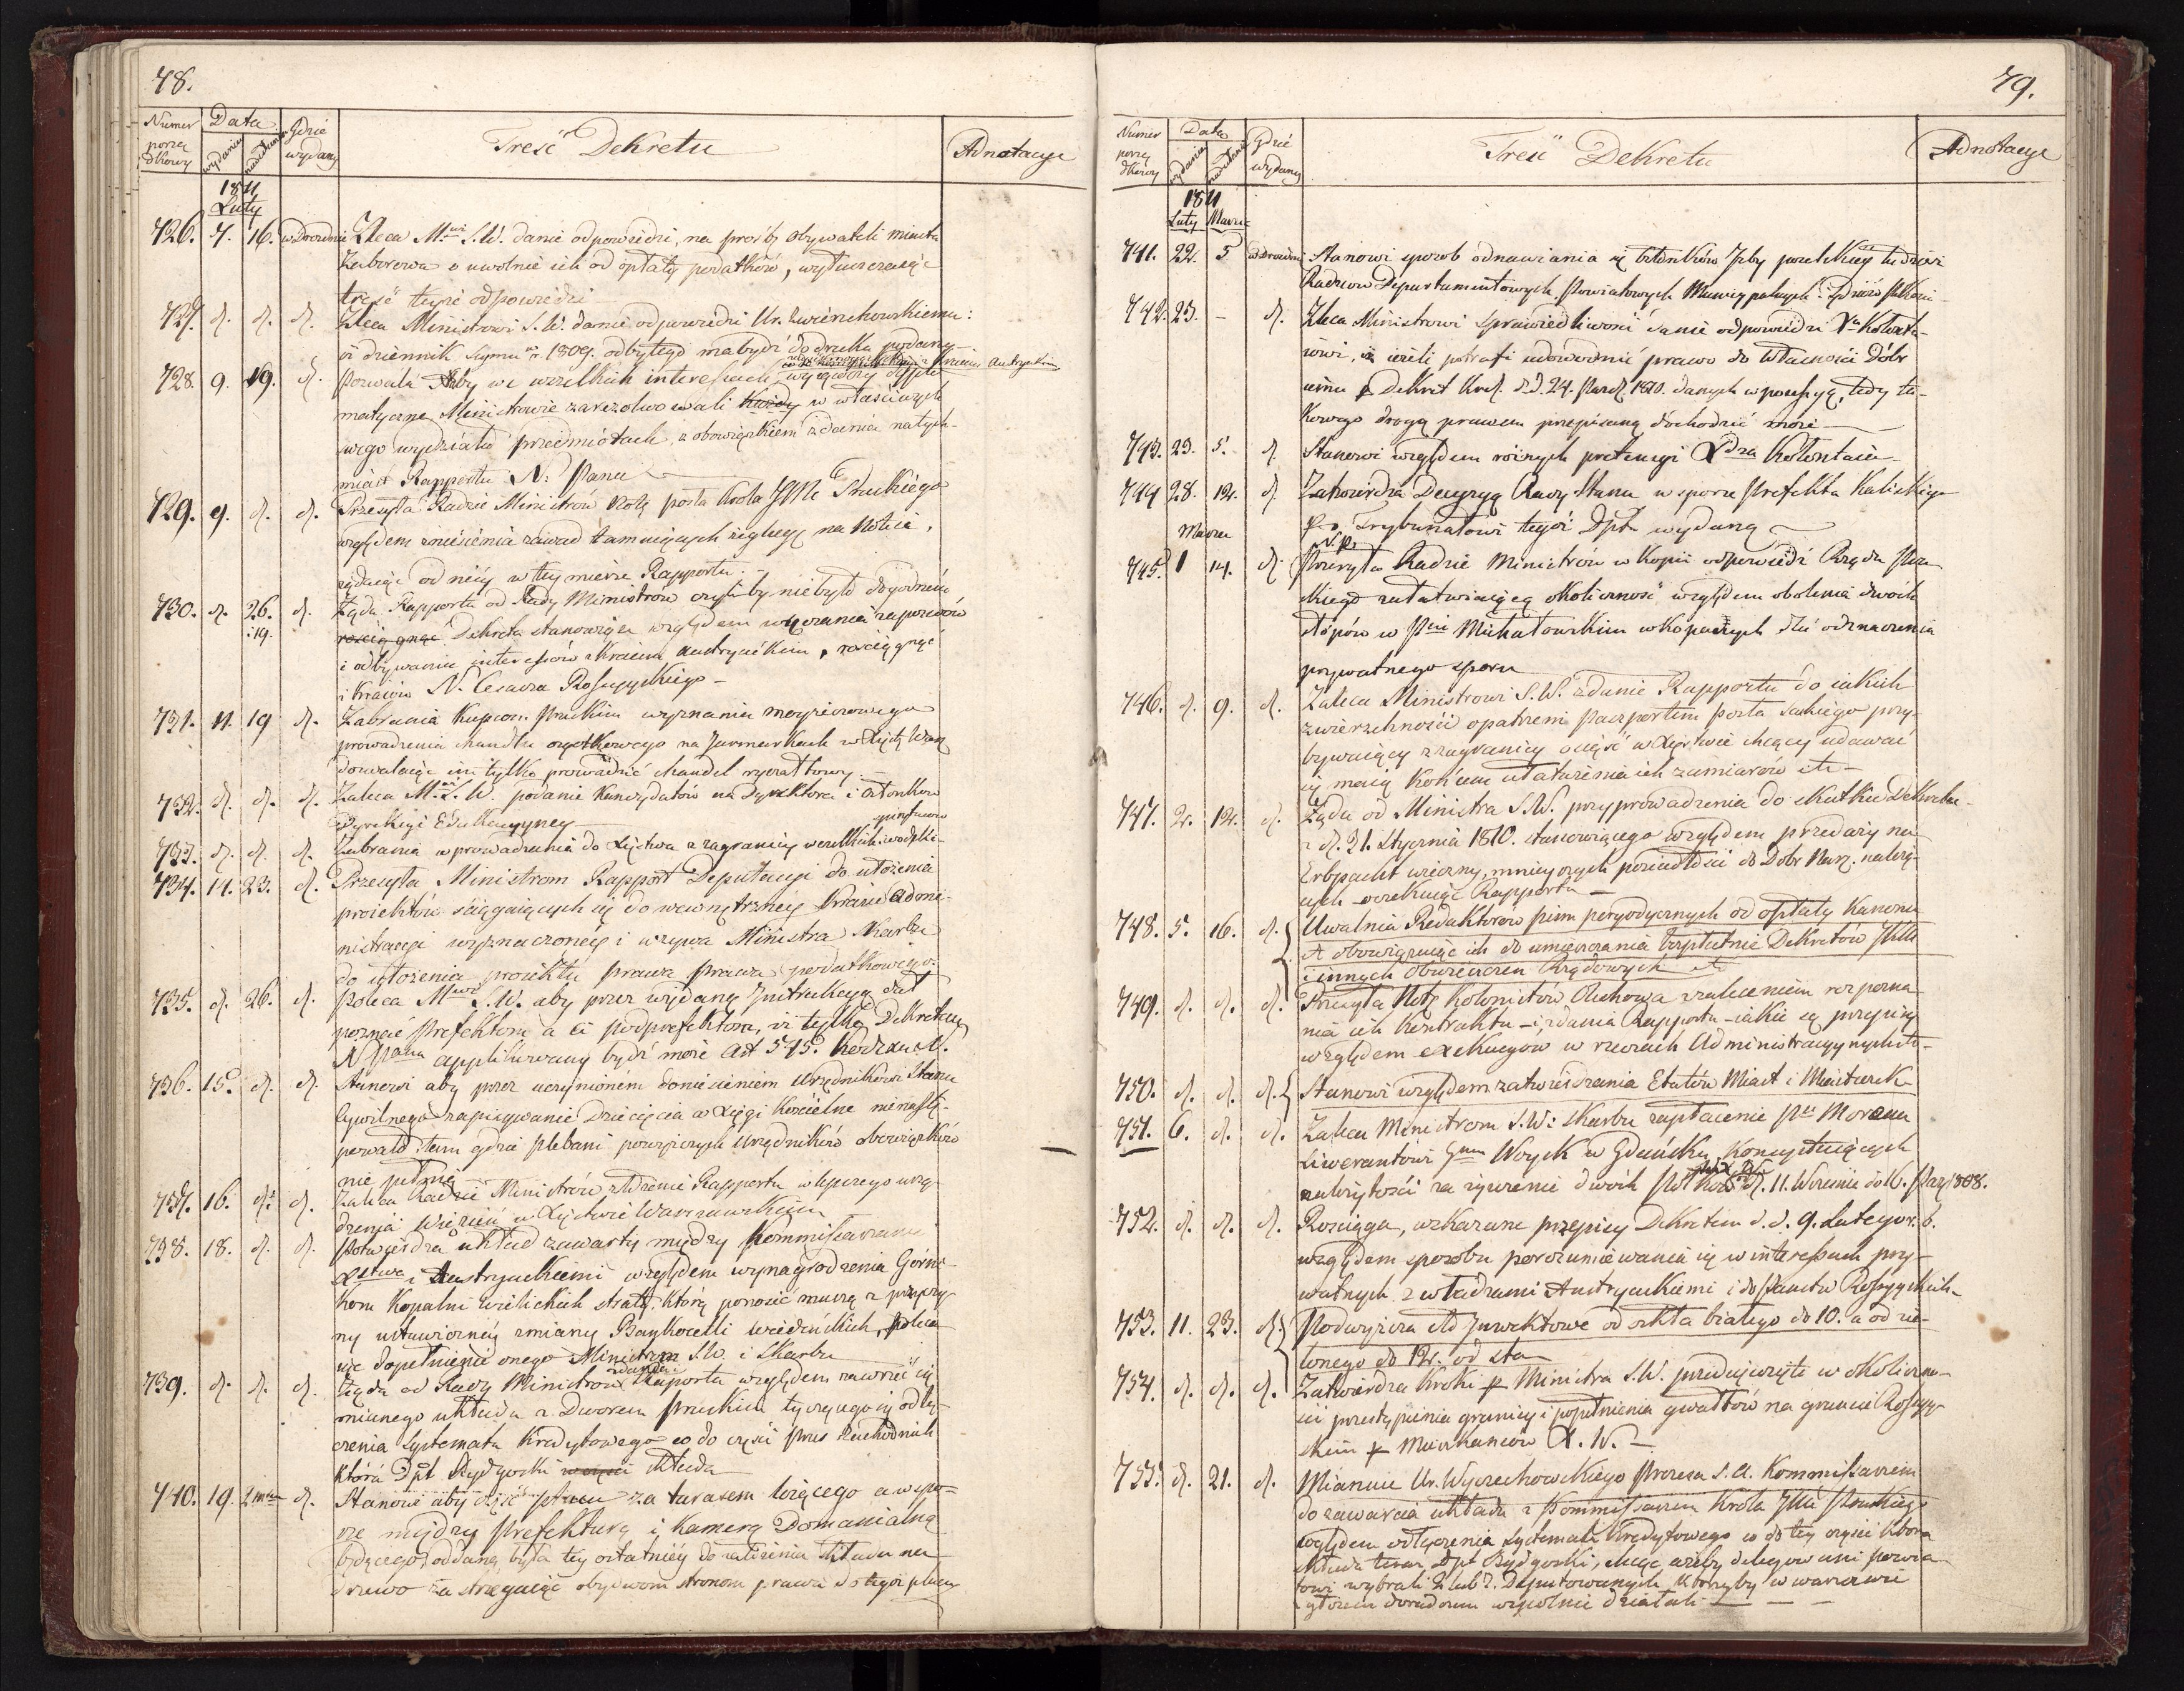 78.
Numer porządkowy
Data
wydania
nadesłania
Gdzie wydany
Treść Dekretu
Adnotacye
1811
Luty
726. 7. 16. w Dreznie Zleca M.wi S.W. danie odpowiedzi, na prośbę obywateli miasta
Zaborowa o uwolnie ich od opłaty podatków, wyłuszczając
treść teyże odpowiedzi
727. d. d. d. Zleca Ministrowi S.W. danie odpowiedzi Ur.
iż dziennik Seymu w r. 1809. odbytego ma bydź do druku podany
728. 9. 19. d. Pozwala Ażby we wszelkich interesach wyiąwszy dyplo
matyczne Ministrowie zarezolwowali każdy w właściwych
swego wydziału przedmiotach, z obowiązkiem zdania natych-
miast Rapportu N. Panu
729. 9. d. d. Przesyła Radzie Ministrów Notę posła Króla JMci Pruskiego
względem zniesienia zawad tamuiących żeglugę na Noteci,
żądaiąc od niey w tey mierze Rapportu.
730. d. 26. i 19. d. Żąda Rapportu od Rady Ministrów czyliby niebyło dogodnem
rosciągnąć Dekreta stanowiące względem wręczania zapozwów
i odbywania interessów z Kraiem Austryackiem, rościągnąć
i Kraiów N. Cesarza Rossyyskiego -
731. 11. 19 d. Zabrania Kupcom Pruskim wyznania moyżeszowego
prowadzenia handlu cząstkowego na Jarmarkach w Xięst. Warsz.
dozwalaiąc im tylko prowadzić handel ryczałtowy.
732. d. d. d. Zaleca M. S. W. podanie Kandydatów na Dyrektora i członków
Dyrekcyi Edukacyyney
733. d. d. d. Zabrania wprowadzania do Xięstwa z zagranicy wszelkich
734. 14. 23. d. Przesyła Ministrom Rapport Deputacyi do ułożenia
proiektów ściągaiących się do wewnętrzney Kraiu Admi-
nistracyi wyznaczoney i wzywa Ministra Skarbu
do ułożenia proiektu prawa podatkowego.
735. d. 26. d. Poleca M.wi S.W. aby przez wydaną Instrukcyą dał
poznać Prefektom a ci podprefektom, iż tylko Dekretem
N Pana applikowany bydź może Art 545. Kodexu N.
736. 15. d. d. Stanowi aby przez uczynionem doniesieniem Urzędnikowi Stanu
Cywilnego zapisywanie Dziecięcia w Xięgi Kościelne nienastę-
powało tam gdzie plebani powyższych urzędników obowiązków
nie pełnią
737. 16. d. d. Zaleca Radzie Ministrów złożenie Rapportu lepszego urzą-
dzenia Więzień w Xięstwie Warszawskiem
738. 18. d. d. Potwierdza układ zawarty między Kommissarzami
Xstwa i Austryackiemi względem wynagrodzenia Górni-
kom Kopalni Wielickich straty, którą ponosić muszą z przyczy-
ny ustawiczney zmiany Bankocetli Wiedeńskich, poleca
iąc dopełnienie onego Ministrom S.W. i Skarbu
739. d. d. d. Żąda od Rady Ministrów zdania Raportu względem zawrzeć się
mianego układu z Dworem Pruskim tyczącego się odłą-
czenia Systematu Kredytowego co do części Prus Zachodnich
która Dpt Bydgoski składa
740. 19. 2 d. Stanowi aby część placu za tarasem leżącego a w spo-
rze między Prefekturą i Kamerą Domanialną
będącego, oddaną była tey ostatniey do założenia składu na
drzewo zastrzegaiąc obydwom stronom prawa do tegoż placu
79.
Numer porządkowy
Data
wydania
nadesłania
Gdzie wydany
Treść Dekretu
Adnotacye
1811
Luty Marzec
741. 22. 5 w Dreznie Stanowi sposób odnawiania się członków Izby poselskiey tudzież
Radców Departamentowych Powiatowych Municypalnych i Sędziów Pokoiu
742. 23. - d. Zleca Ministrowi Sprawiedliwości danie odpowiedzi X Kołłąta-
iowi, iż ieżeli potrafi udowodnić prawo do własności dóbr
temu p Dekret Król. d. d. 24. 1810. danych w possessyą, tedy ta-
kowego drogą prawem przepisaną dochodzić może
743. 23. 5. d. Stanowi względem różnych pretensyi Xdza Kołłontaia
744 28. 12. d. Zatwierdza Decyzyą Rady Stanu w sporze Prefekta Kaliskiego
Trybunałowi tegoż Dpt. wydaną
Marzec
745. 1 14. d. Przesyła Radzie Ministrów w Kopii odpowiedź Rządu Prus
skiego załatwiaiącą okoliczność względem obalenia dwóch
słupów w Pcie Michałowskim w Kopanych dla odznaczenia
prywatnego sporu
746. d. 9. d. Zaleca Ministrowi S.W. zdanie Rapportu do iakich
zwierzchności opatrzeni paszportem posła Saskiego przy-
bywaiący z zagranicy osieść w Xięstwie chcący udawać
się maią końcem ułatwienia ich zamiarów etc -
747. 2. 12. d. Żąda od Ministra S.W. przyprowadzenia do skutku Dekretu
z d. 31. Stycznia 1810. stanowiącego względem przedaży na
Erbpacht wieczny, mnieyszych posiadłości do Dobr Narz. należą-
cych oczekuiąc Rapportu -
748. 5. 16. d. Uwalnia Redaktorów pism peryodycznych od opłaty Kanonu
obowiązuiąc ich do umieszczania bezpłatnie Dekretów JKM
i innych obwieszczeń Rządowych etc
749. d. d. d. Przesyła Notę Kolonistów z zaleceniem rozpozna
nia ich Kontraktu i zdania Rapportu iakie są przepisy
względem exekucyów w rzeczach Administracyynych etc -
750. d. d. d. Stanowi względem zatwierdzania Etatów Miast i Miasteczek
751. 6. d. d. Zaleca Ministrom S.W. i Skarbu zapłacenie
Liwerantowi Woysk w Gdańsku Konsystuiących
należytości za żywienie dwóch d. 11. Września do 16. 1808.
752. d. d. d. Rosciąga, wskazane przepisy Dekretem d. d. 9. Lutego r. b.
względem sposobu porozumiewania się w interessach pry-
watnych z władzami Austryackiemi i do Państw Rossyyskich
753. 11. 23. d. Podwyższa cło Inwektowe od szkła białego do 10. a od zie-
lonego do 12. od sta
754. d. d. d. Zatwierdza Kroki p Ministra S.W. przedsięwzięte w okoliczno-
ści przestąpienia granicy i popełnienia gwałtów na gruncie Rossyy-
skim p Mieszkańców X. W. -
755. d. 21. d. Mianuie Ur. Wyczechowskiego Prezesa S. A. Kommissarzem
do zawarcia układu z Kommissarzem Króla JMci Pruskiego
względem odłączenia Systematu Kredytowego co do tey części która
składa teraz Dpt Bydgoski, chcąc ażeby delegowani powia
towi wybrali 2 lub 3. Deputowanych którzyby w Warszawie
z głosem doradczem wspólnie działali